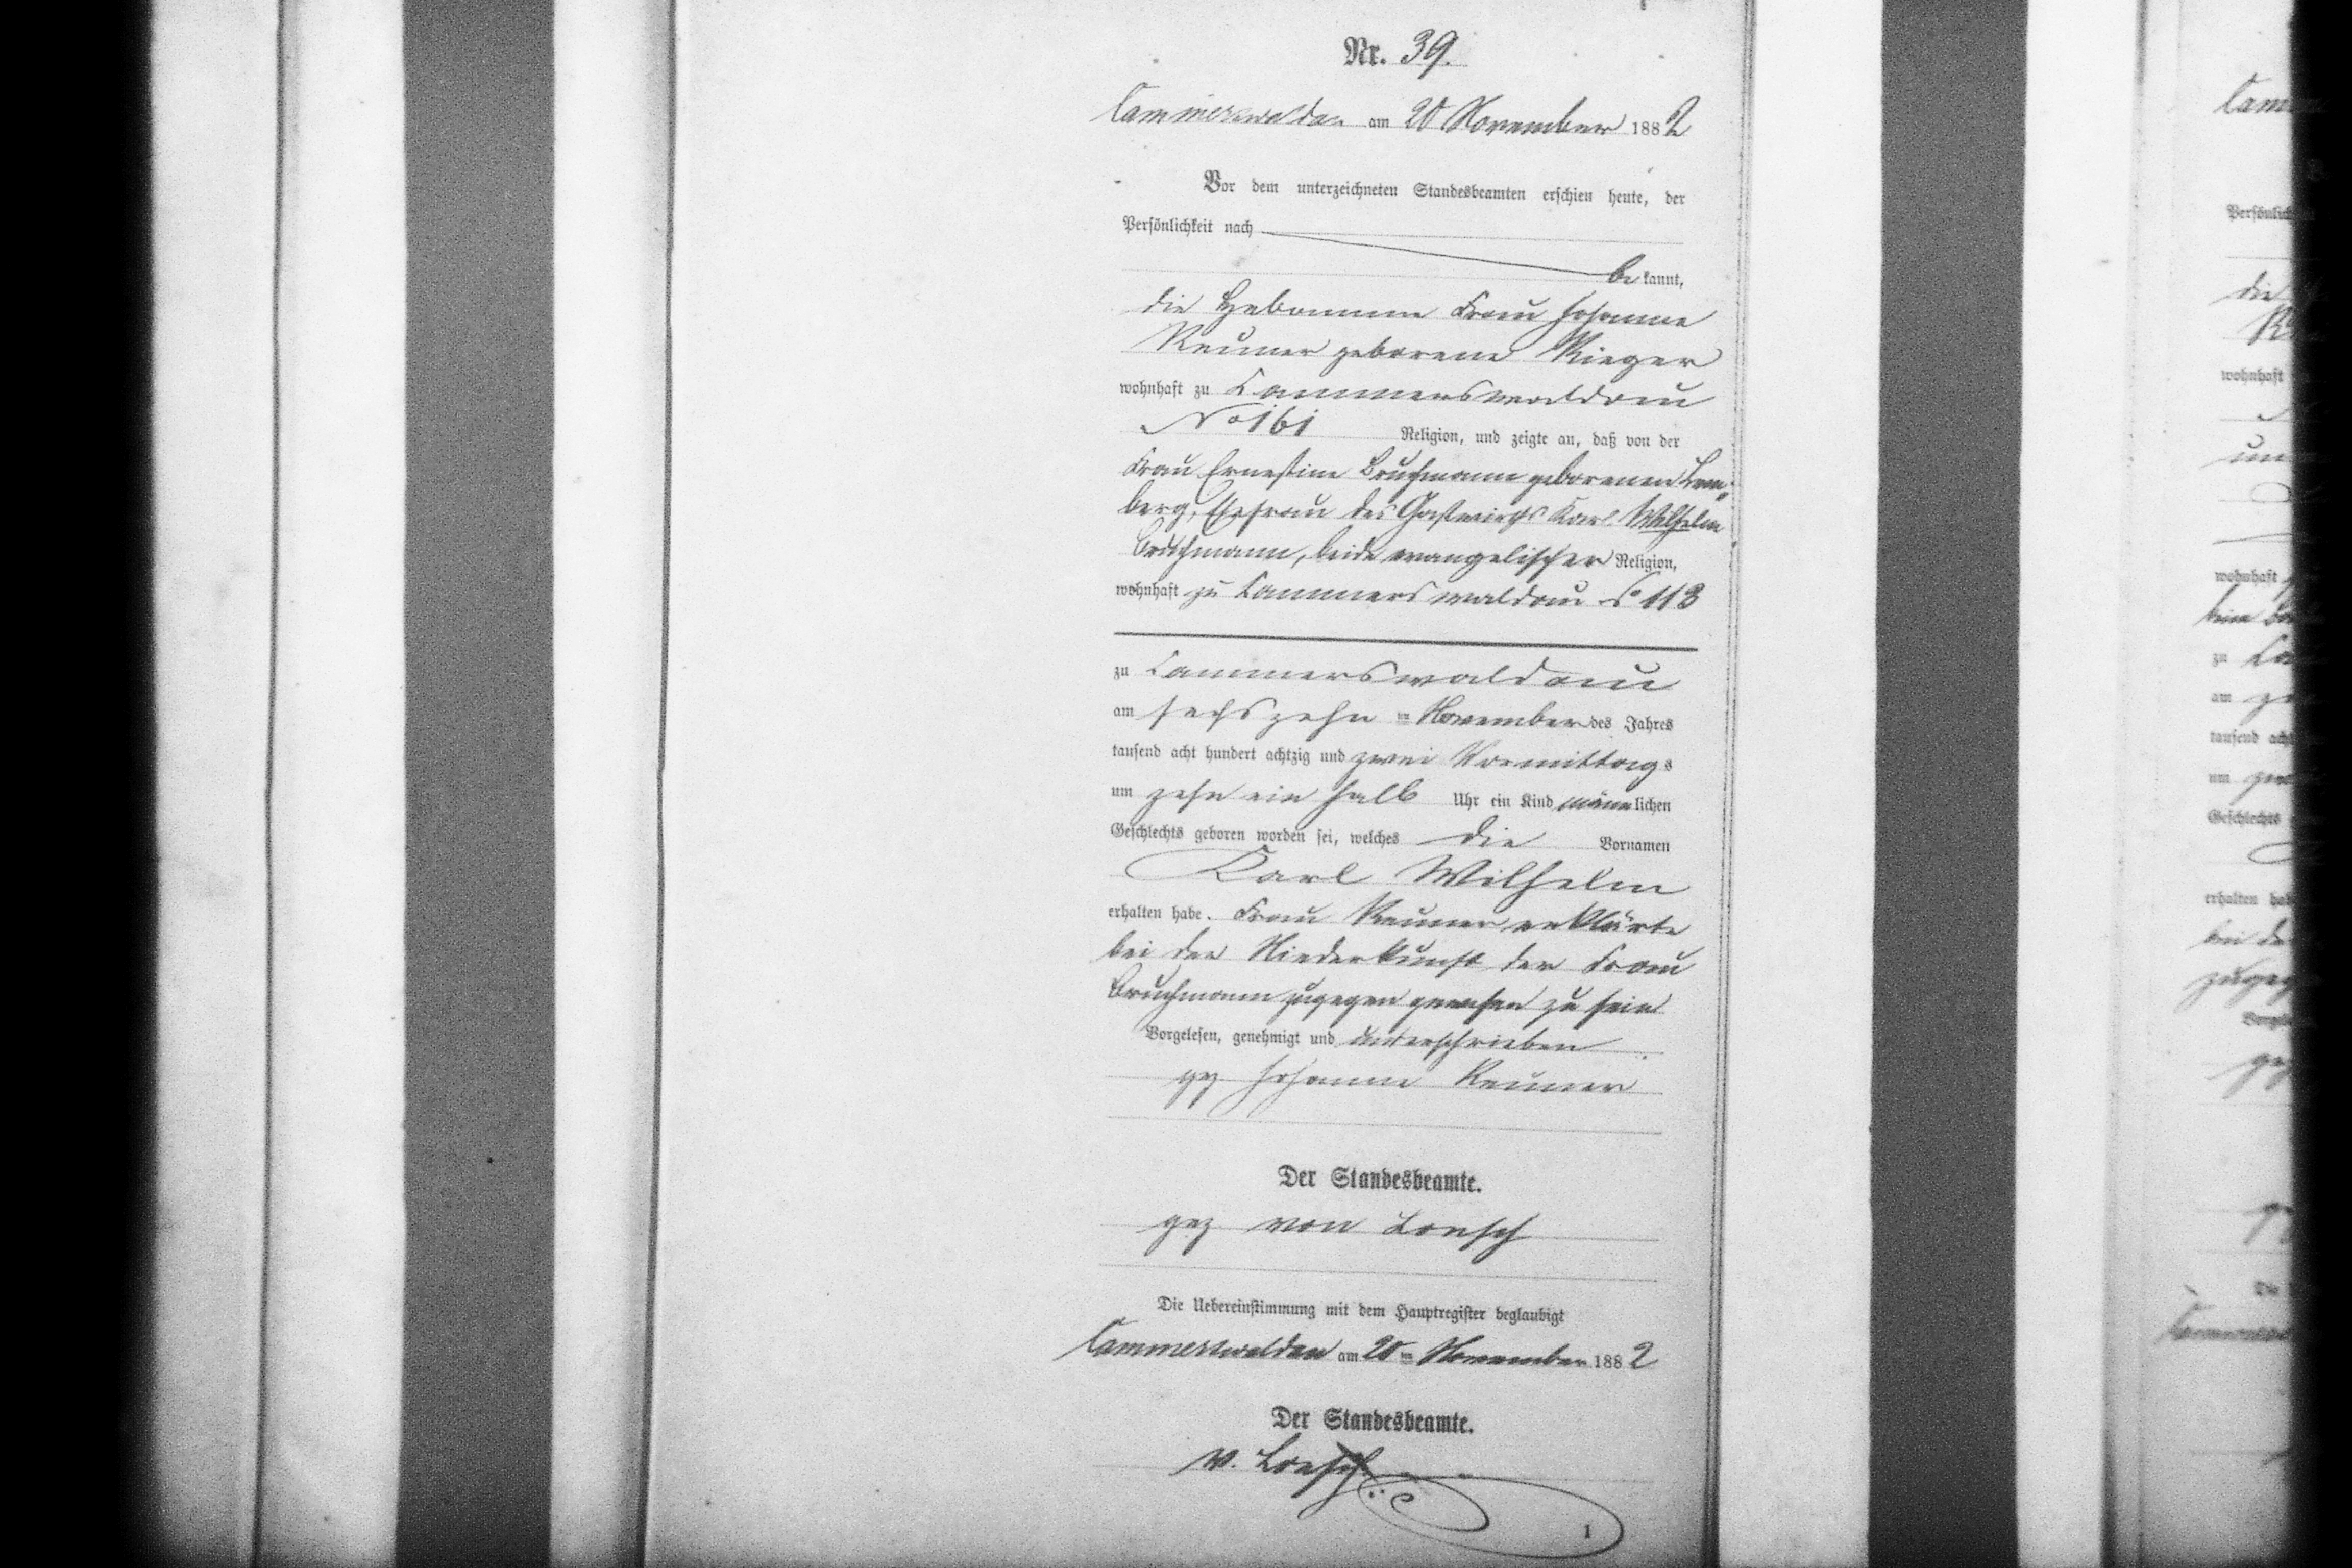 Nr. 39.
Cammerswaldau am 20 November 1882
Vor dem unterzeichneten Standesbeamten erschien heute, der
Persönlichkeit nach
be kannt,
die Hebamme Frau Johanne
Reuner geborene Rieger
wohnhaft zu Cammerswaldau
No 161 Religion, und zeigte an, daß von der
Frau Ernestine Bruchmann geborenen
berg, Ehefrau des Gastwirths Karl Wilhelm
Bruchmann, beide evangelischer Religion,
wohnhaft zu Cammerswaldau No 113
zu Cammerswaldau
am sechszehn ten November des Jahres
tausend acht hundert achtzig und zwei Vormittags
um zehn ein halb Uhr ein Kind männlichen
Geschlechts geboren worden sei, welches die Vornamen
Karl Wilhelm
erhalten habe. Frau Reuner erklärte
bei der Niederkunft der Frau
Bruchmann zugegen gewesen zu sein
Vorgelesen, genehmigt und unterschrieben
gez Johanne Reuner
Der Standesbeamte.
gez von Loesch
Die Uebereinstimmung mit dem Hauptregister beglaubigt
Cammerswaldau am 20 ten November 1882
Der Standesbeamte.
v. Loesch
1
Cam
Persönlich
die
wohnhaft
un
wohnhaft
zu
am
tausend ach
um
Geschlechts
erhalten hab
bei de
zugeg